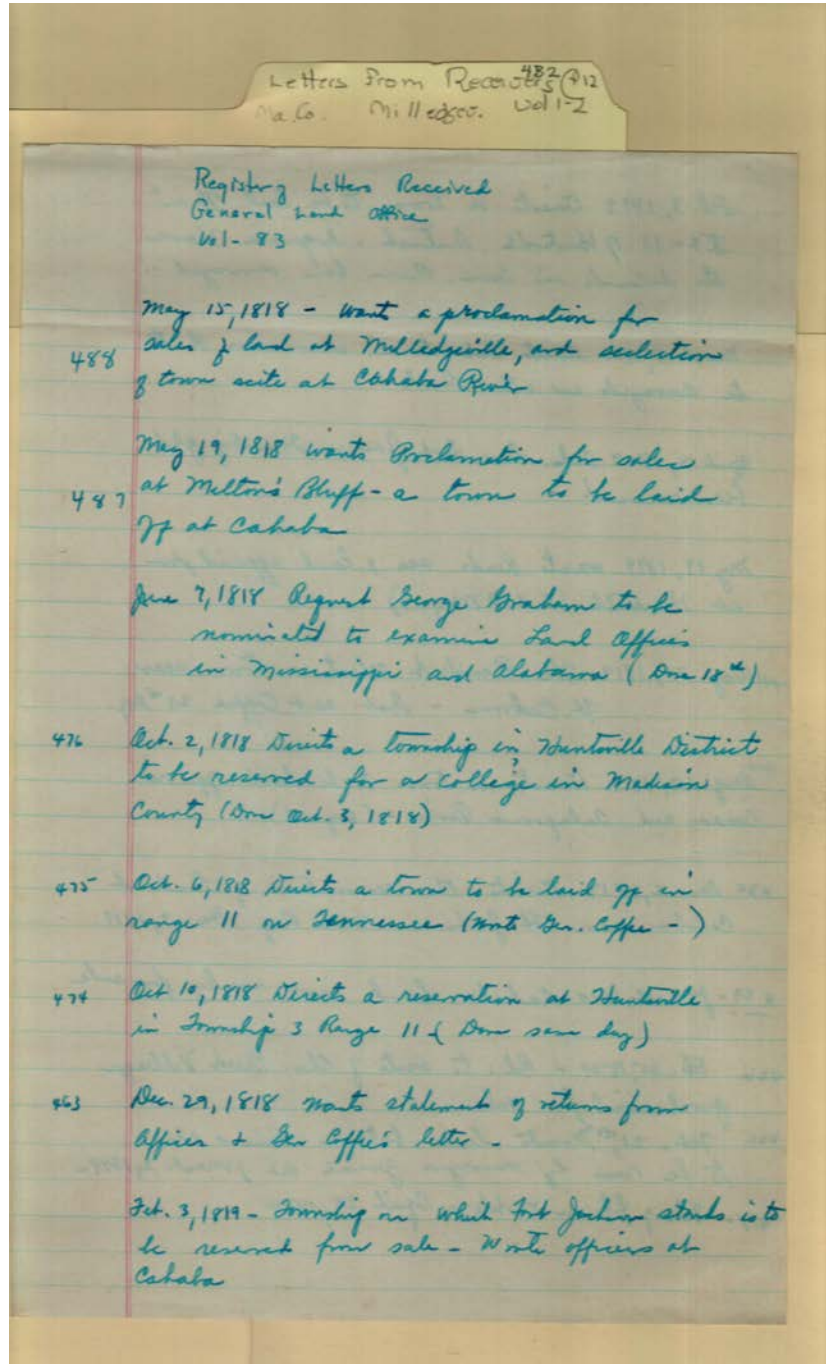 Letters From Receivers 482 @ 12
Ma. Co. Milledgev. Vol 1-2
Registry Letters Received
General Land Office
Vol - 83
May 15, 1818 - Want a proclamation for
488 sales of land at Milledgeville, and selection
of town scite at Cahaba River
May 19, 1818 wants Proclamation for sales
487 at Melton's Bluff - a town to be laid
off at Cahaba
June 7, 1818 Request George Graham to be
nominated to examine Land Offices
in Mississippi and Alabama (Done 18th)
476 Oct. 2, 1818 Directs a township in Huntsville District
to be reserved for a college in Madison
?
County (Done Oct. 3, 1818)
475 Oct. 6, 1818 Directs a town to be laid off in
range 11 on Tennessee (Wrote Gen. Coffee - )
474 Oct 10, 1818 Directs a reservation at Huntsville
in Township 3 Range 11 (Done same day)
463 Dec. 29, 1818 Wants statement of returns from
Offices + Gen Coffee's letter -
Feb. 3, 1819 - Township on which Fort Jackson stands is to
be reserved from sale - Wrote officers at
Cahaba